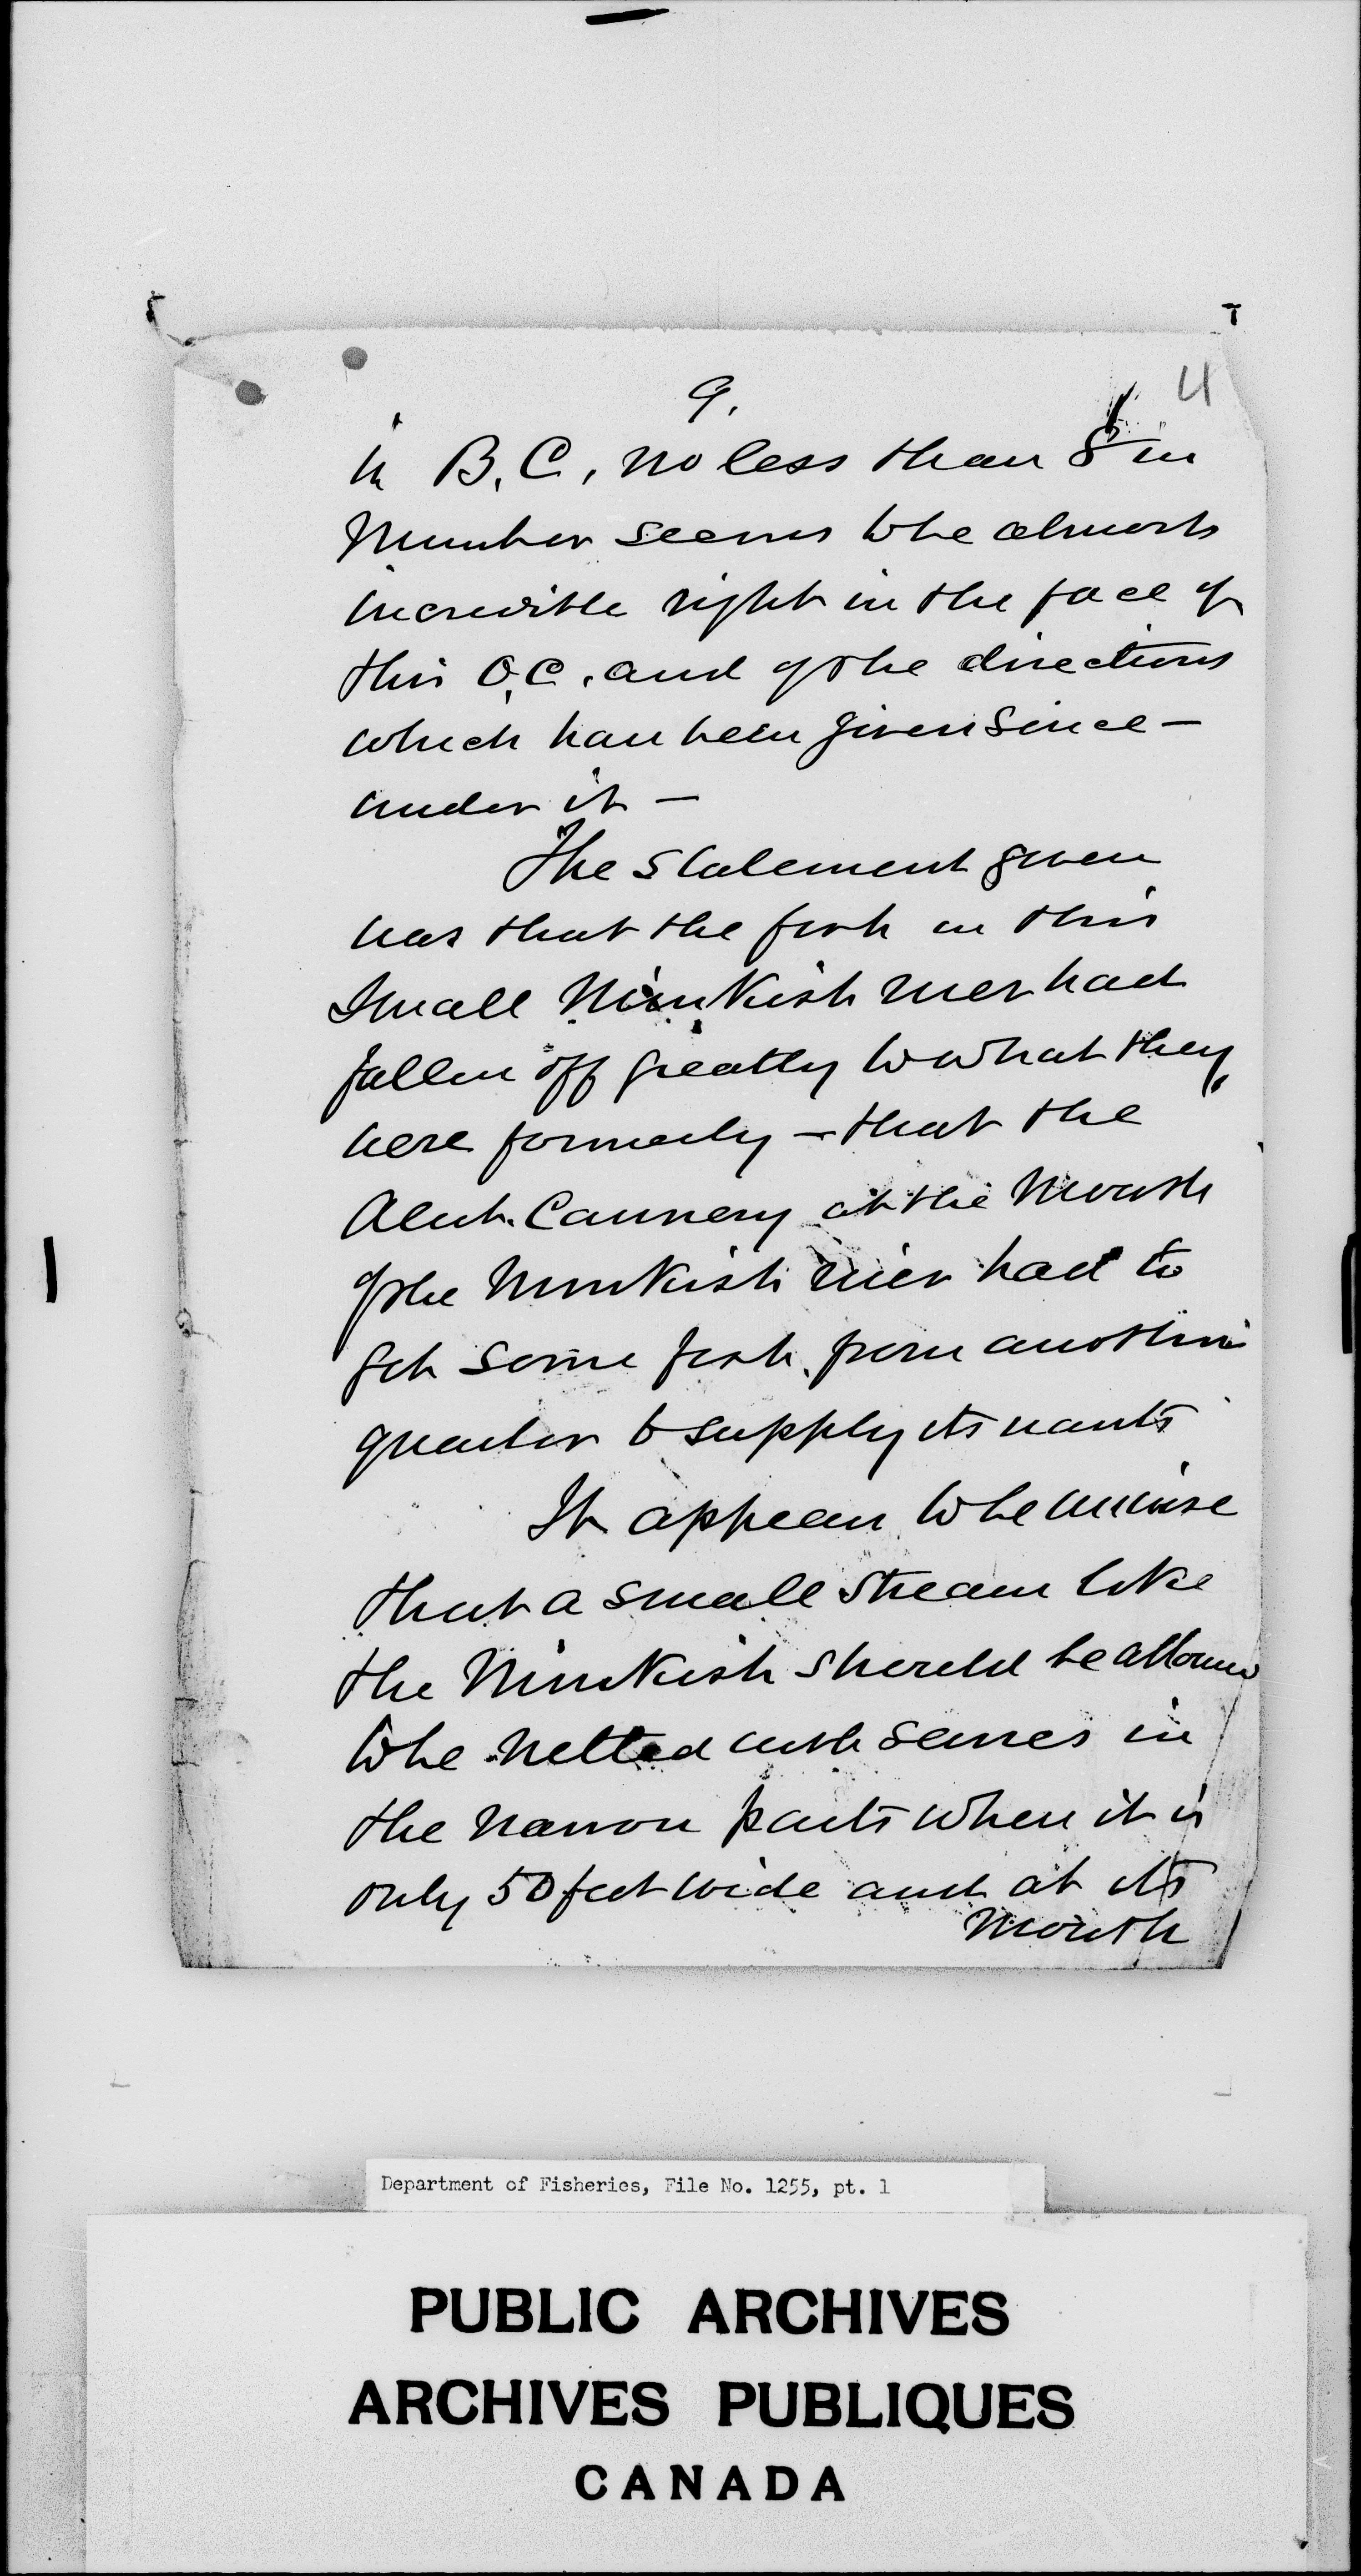 9.
4
in B.C, no less than 8 in
number seems to be almost
incredible right in the face of
this O.C. and of the directions
which have been given since —
under it —
The statement given
was that the fish in this
small Nimkish river had
fallen off greatly to what they
were formerly — that the
Alert. Cannery at the mouth
of the Nimkish river had to
get some fish from another
quarter to supply its wants
It appears to be unwise
that a small stream like
the Nimkish should be allowed
to be netted with seines in
the narrow parts when it is
only 50 feet wide and at its
mouth
Department of Fisheries, File No. 1255, pt. 1
PUBLIC ARCHIVES
ARCHIVES PUBLIQUES
CANADA